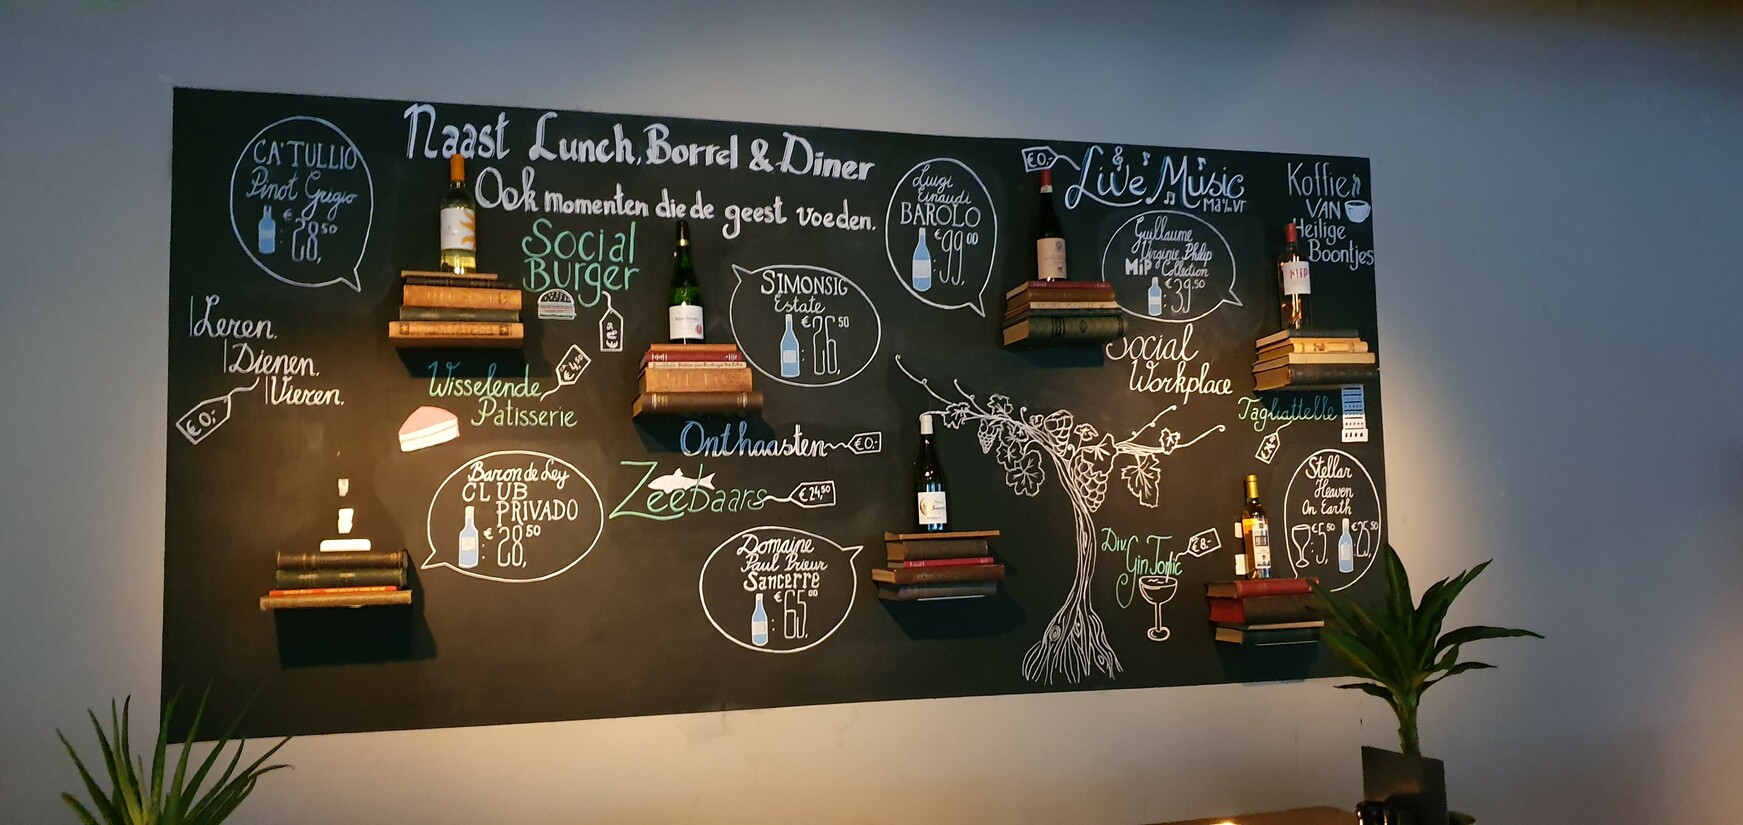 Naast Lunch, Borrel & Diner
Ook momenten die de geest voeden.
CA'TULLIO
Pinot Grigio
€ 28,50
Social
Burger
Luigi
Einaudi
BAROLO
€ 99,00
€0,-
Live Music
Guillaume
Virginie Philip
MiP Collection
39,50
Koffie
VAN
Heilige
Boontjes
MiP
SIMONSIG
Estate
€ 26,50
Leren.
Dienen.
Vieren.
€0,-
Wisselende
Patisserie
€4,50
Social
Workplace
Tagliattelle
Onthaasten
€0,-
Zeebaars
€24,50
Baron de Ley
CLUB
PRIVADO
€ 28,50
Domaine
Paul Prieur
Sancerre
€ 65,00
Div.
Gin Tonic
€8,-
Stellar
Heaven
On Earth
€5,50
€25,50